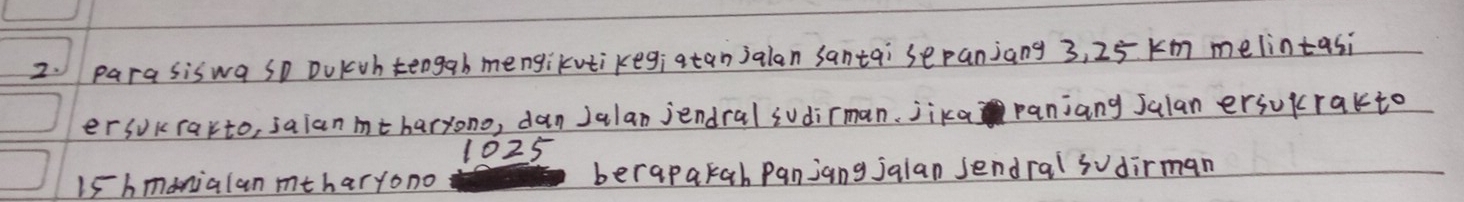 2. Para siswa SD Dukuh tengah mengikuti kegiatan jalan santai sepanjang 3,25 km melintasi
ersukrakto, jalan mt haryono, dan jalan jendral sudirman. jika panjang jalan ersukrakto
15 hm jalan mt haryono 1025 berapakah panjang jalan jendral sudirman